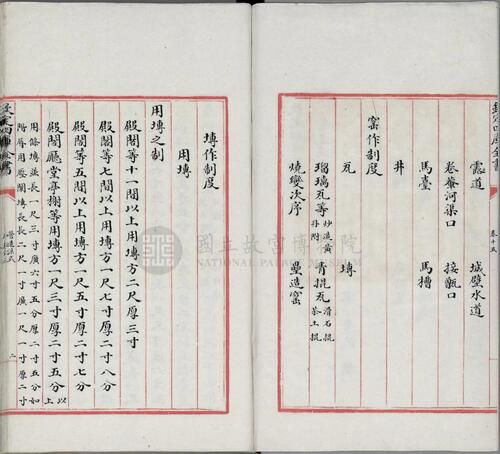 欽定四庫全書
卷十五
露道 城壁水道
卷輂河渠口 接甑口
馬臺 馬槽
井
窰作制度
瓦 塼
琉璃瓦等 炒造黃丹附 青掍瓦 滑石掍茶土掍
燒變次序 壘造窰
塼作制度
用塼
用塼之制
殿閣等十一間以上用塼方二尺厚三寸
殿閣等七間以上用塼方一尺七寸厚二寸八分
殿閣等五間以上用塼方一尺五寸厚二寸七分
殿閣廳堂亭榭等用塼方一尺三寸厚二寸五分 以上
用條塼並長一尺三寸廣六寸五分厚二寸五分如
階脣用壓闌塼長二尺一寸廣一尺一寸厚二寸
欽定四庫全書
營造法式
二
國立故宮博物院
NATIONAL PALACE MUSEUM